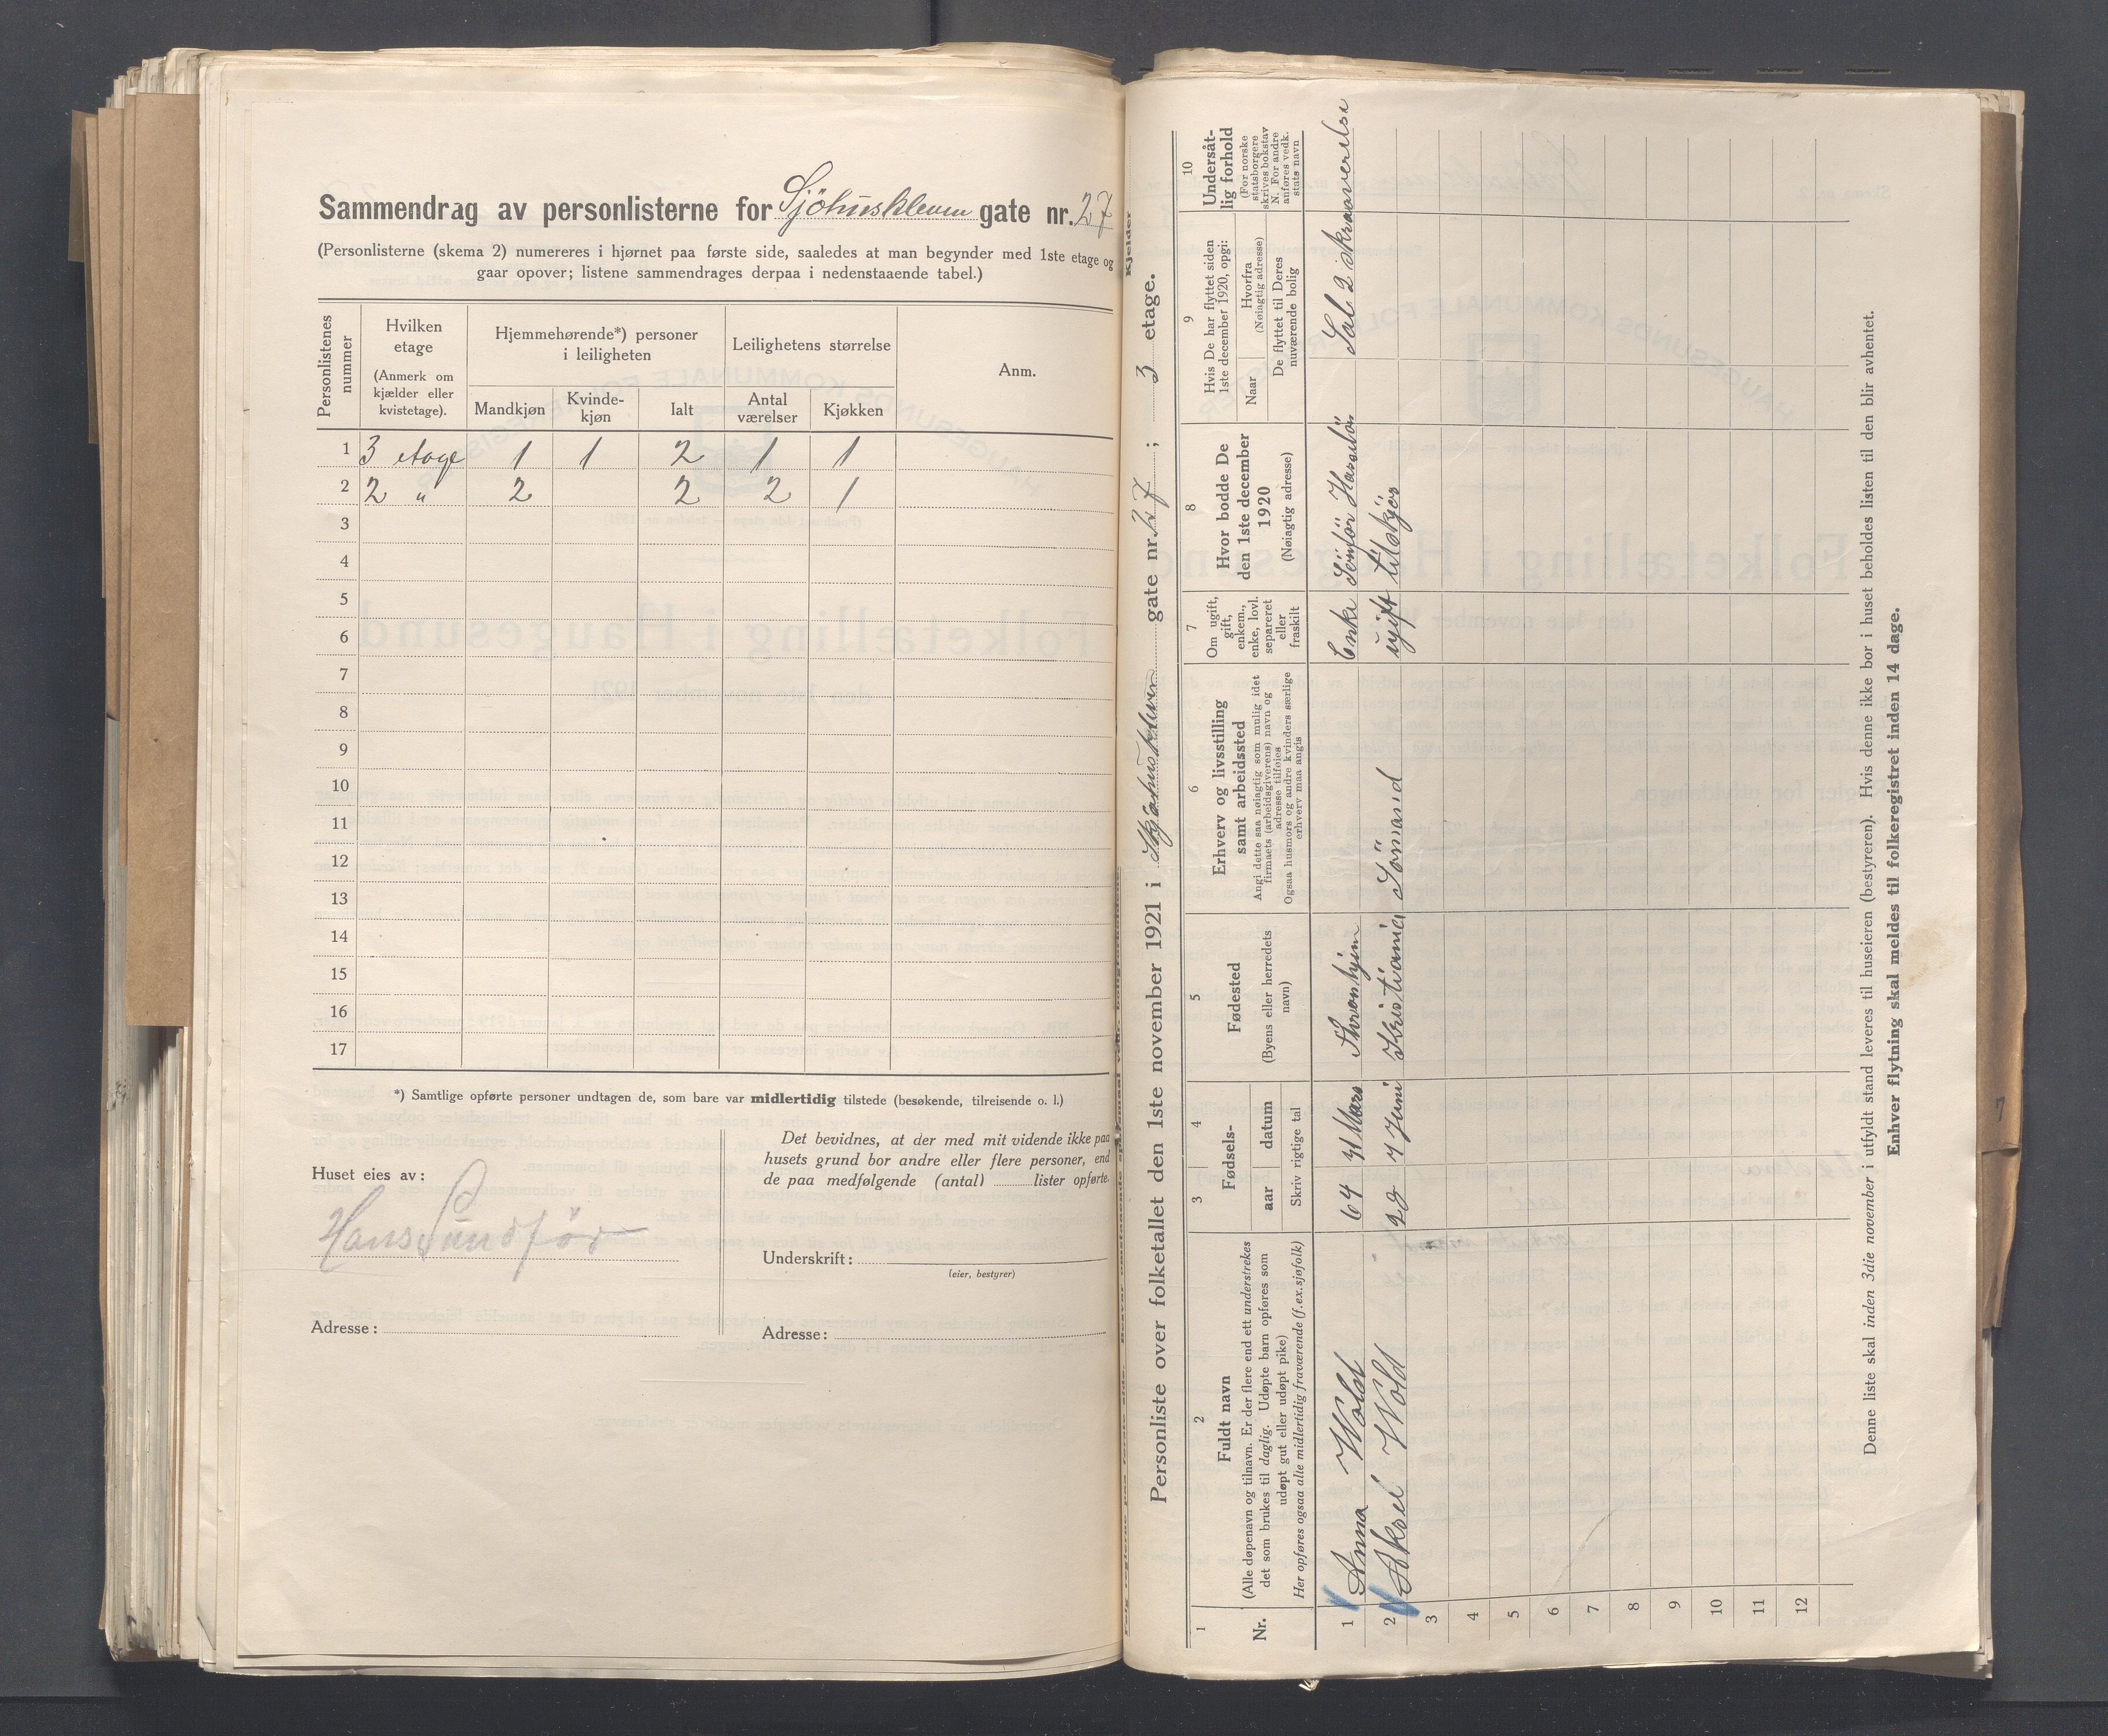 Sammendrag av personlisterne for Sjöhuskleven gate nr. 27
(Personlisterne (skema 2) numereres i hjørnet paa første side, saaledes at man begynder med 1ste etage og
gaar opover; listene sammendrages derpaa i nedenstaaende tabel.)
Personlistenes nummer
Hvilken etage
(Anmerk om kjælder eller kvistetage).
Hjemmehørende*) personer i leiligheten
Mandkjøn
Kvinde-kjøn
Ialt
Leilighetens størrelse
Antal værelser
Kjøkken
Anm.
1 3 etage 1 1 2 1 1
2 2 " 2 2 2 1
3
4
5
6
7
8
9
10
11
12
13
14
15
16
17
*) Samtlige opførte personer undtagen de, som bare var midlertidig tilstede (besøkende, tilreisende o. l.)
Huset eies av:
Hans Sundför
Adresse:
Det bevidnes, at der med mit vidende ikke paa
husets grund bor andre eller flere personer, end
de paa medfølgende (antal) lister opførte.
Underskrift:
(eier, bestyrer)
Adresse:
Kjelder
Personliste over folketallet den 1ste november 1921 i gate nr. 27; 3 etage.
1
Nr.
2
Fuldt navn
(Alle døpenavn og tilnavn. Er der flere end ett understrekes
det som brukes til daglig. Udøpte barn opføres som
udøpt gut eller udøpt pike)
Her opføres ogsaa alle midlertidig fraværende (f.ex. sjøfolk)
3 4
Fødsels-
aar datum
Skriv rigtige tal
5
Fødested
(Byens eller herredets
navn)
6
Erhverv og livsstilling
samt arbeidssted
Angi dette saa nøiagtig som mulig idet
firmaets (arbeidsgiverens) navn og
adresse tilføies
Ogsaa husmors og andre kvinders særlige
erhverv maa angis
7
Om ugift,
gift,
enkem.,
enke, lovl.
separeret
eller
fraskilt
8
Hvor bodde De
den 1ste december
1920
(Nøiagtig adresse)
9
Hvis De har flyttet siden
1ste december 1920, opgi:
Naar
Hvorfra
(Nøiagtig adresse)
De flyttet til Deres
nuværende bolig
10
Undersåt-
lig forhold
(For norske
statsborgere
skrives bokstav
N. For andre
anføres vedk.
stats navn
1 Anna Wold 64 31 Mars Thronhjem Enke
2 Aksel Wold 29 7 Juni Kristiania Sömand ugift
3
4
5
6
7
8
9
10
11
12
Denne liste skal inden 3die november i utfyldt stand leveres til huseieren (bestyreren). Hvis denne ikke bor i huset beholdes listen til den blir avhentet.
Enhver flytning skal meldes til folkeregistret inden 14 dage.